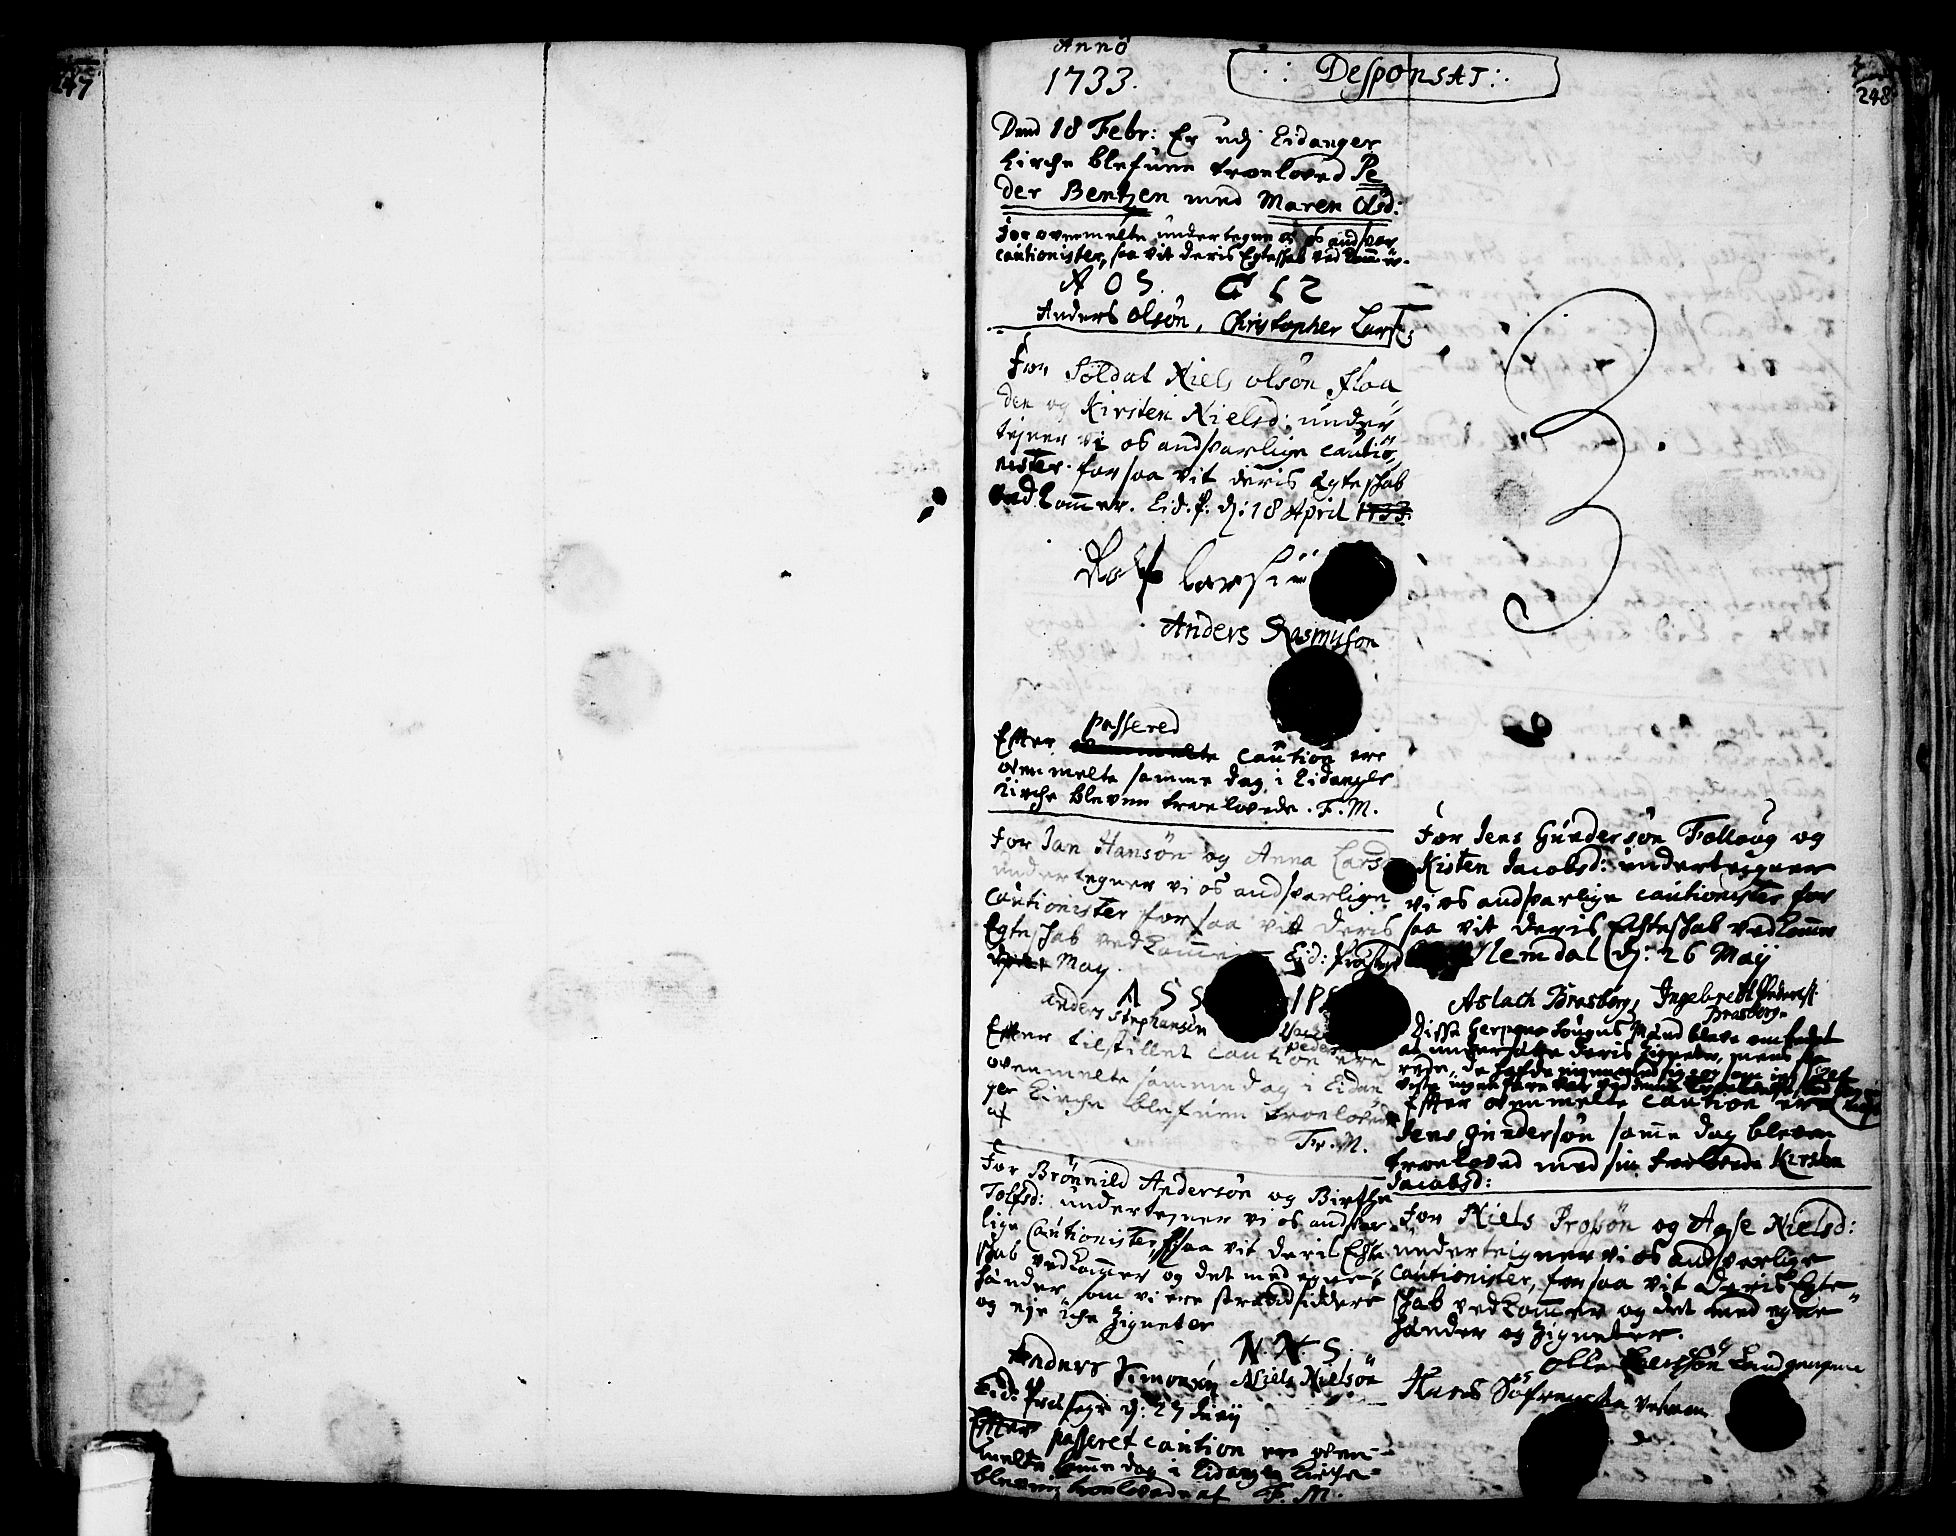 247
Anno
1733.
.: Desponsat :.
248
Dend 18 Febr: Er udj Eidanger
Kirche blefuen troeloved Pe
der Bentzen med Maren Olsd:
For ovenmelte undertegne vi os andsvar
cautionister, saa vit deris Egteskab vedkommer.
A O S. C L S
Anders Olsøn, Christopher Lars:
For Soldat Niels Olsøn Floa
den og Kirsten Nielsd: under
tejner vi os andsvarlige cautio,
nister for saa vit deris Egteskab
vedkommer. Eid. P. dj: 18 April 1733.
Rolf Larsen
Anders Rasmusøn
passered
Efter caution ere
ovenmelte samme dag i Eidanger
Kirche blevne troelovede. F. M.
For Jan Hansøn og Anna Larsd
undertegner vi os andsvarlige
cautionister for saa vit deris
Egteskab vedkommer Eid: Præstegd
May.
A S S
Anders Stephansøn
Peders
Efter tilstillet caution ere
ovenmelte samme dag i Eidan
ger Kirche blefuen troelovede
af
Fr. M.
For Brønnild Andersøn og Birthe
Tolfsd: undertejner vi os andsvar
lige Cautionister, saa vit deris Egte
skab vedkommer og det med egne
hænder, som vi ere strandsiddere
og eje iche Zigneter
N. N. S.
Anders Simonsøn Niels Nielsøn
Eid: Præstegr dj: 27 Junij
Efter passeret caution ere oven
melte samme dag i Eidanger Kirche
blevne troelovede af F. M.
For Jens Gundersøn Tolloug og
Kisten Jacobsd: undertegner
vi os andsvarlige cautionister for
saa vit deris Echteskab vedkommer
Nemdal dj: 26 Maij
Aslach Brasberg, Ingebreth Peders:
Brasberg.
Disse Mænd bleve ombedet
at undersætte deris Zigneter, mens
Efter ovenmelte caution er
Jens Gundersøn samme dag bleven
troeloved med sin Kirsten
Jacobsd:
For Niels Prossøn og Aase Nielsd:
underteigner vi os andsvarlige
cautionister, for saa vit deris Egte
skab vedkommer og det med egne
hænder og Zigneter.
Olle Landgangen
Hans